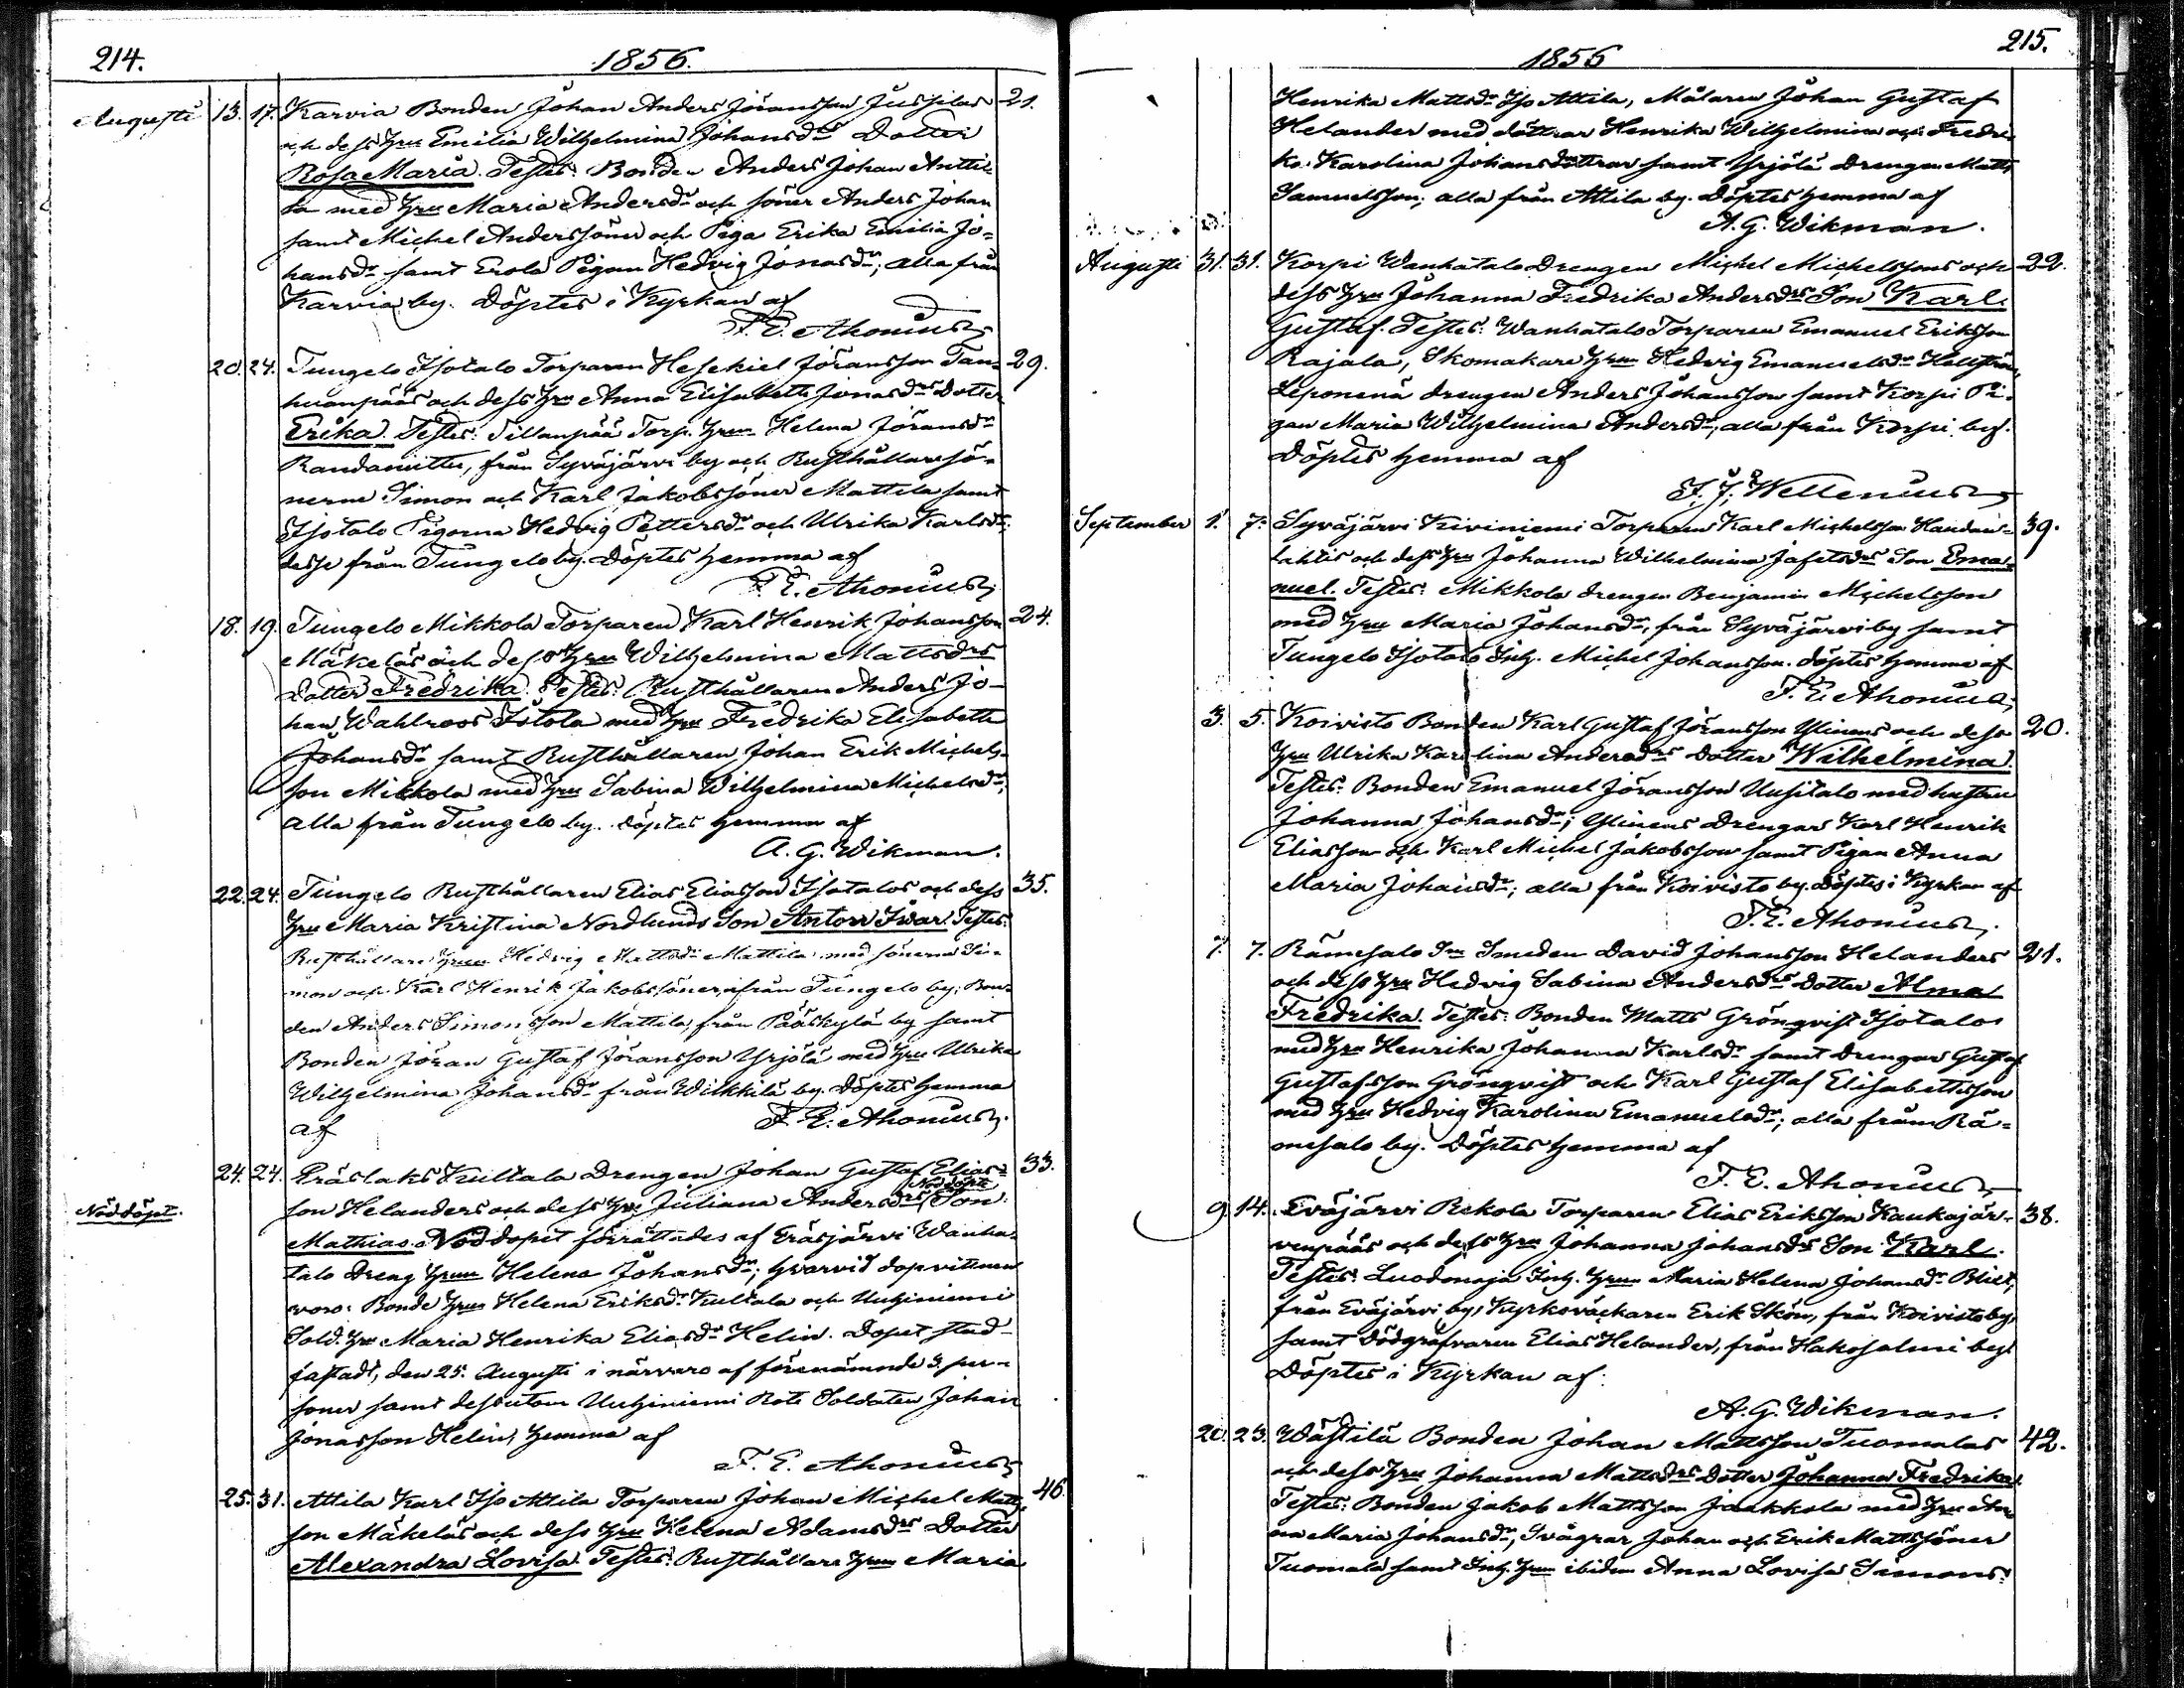 214.
1856.
Augusti 13. 17. Karvia Bonden Johan Anders Jöransson Jussilas 21.
och dess Hru Emilia Wilhelmina Johansdrs Dotter
Rosa Maria. Testes: Bonden Anders Johan Antti-
la med Hru Maria Andersdr och söner Anders Johan
samt Michel Anderssöner och Piga Erika Emilia Jo-
hansdr samt Erola Pigan Hedvig Jonasdr; alla från
Karvia by. Döptes i Kyrkan af
F. E. Ahonius
20. 24. Tungelo Isotalo Torparen Hesekiel Jöransson Tan- 29.
huanpääs och dess Hru Anna Elisabeth Jonasdrs Dotter
Erika. Testes: Tillanpää Torp. Hrun Helena Jöransdr
från Syväjärvi by och Rusthållaresö-
nerne Simon och Karl Jakobssöner Mattila samt
Isotalo Pigorna Hedvig Pettersdr och Ulrika Karlsdr;
desse från Tungelo by. Döptes hemma af
F. E. Ahonius
18. 19. Tungelo Mikkola Torparen Karl Henrik Johansson 24.
Mäkeläs och dess Hru Wilhelmina Mattsdrs
Dotter Fredrika. Testes: Rusthållaren Anders Jo-
han Wahlroos Istola med Hru Fredrika Elisabeth
Johansdr samt Rusthållaren Johan Erik Michels-
son Mikkola med Hru Sabina Wilhelmina Michelsdr;
alla från Tungelo by. Döptes hemma af
A. G. Wikman.
22. 24. Tungelo Rusthållaren Elias Eliasson Isotalos och dess 35.
Hru Maria Kristina Nordlunds Son Anton Iwar. Testes:
Rusthållare Hrun Hedvig Mattsdr Mattila med sönerna Si-
mon och Karl Henrik Jakobssöner, från Tungelo by; Bon-
den Anders Simonsson Mattila, från Pääskylä by samt
Bonden Jöran Gustaf Jöransson Yrjölä med Hru Ulrika
Wilhelmina Johansdr från Wilkkilä by. Döptes hemma
af F. E. Ahonius.
24. 24. Eräslaks Kultala Drengen Johan Gustaf Elias- 33.
son Helanders och dess Hru Juliana Andersdrs Nöddöpte Son
Nöddöpt.
Mathias. Nöddopet förrättades af Eräsjärvi Wanha-
talo Dreng Hrun Helena Johansdr; hvarvid dopvittnen
voro: Bonde Hrun Helena Eriksdr Kultala och Uuhiniemi
Sold. Hru Maria Henrika Eliasdr Helin. Dopet stad-
fästadt, den 25. Augusti i närvaro af förenämnde 3 per-
soner samt dessutom Uuhiniemi Rote Soldaten Johan
Jonasson Helin, hemma af
F. E. Ahonius
25. 31. Attila Karl Iso Attila Torparen Johan Michel Matts- 46.
son Mäkeläs och dess Hru Helena Adamsdrs Dotter
Alexandra Lovisa. Testes: Rusthållare Hrun Maria
1856
215.
Henrika Mattsdr Iso Attila, Målaren Johan Gustaf
Helander med döttrar Henrika Wilhelmina och Fredri-
ka Karolina Johansdöttrar samt Yrjölä Drengen Matts
Samuelsson; alla från Attila by. Döptes hemma af
A. G. Wikman.
Augusti 31. 31. Korpi Wanhatalo Drengen Michel Michelssons och 22.
dess Hru Johanna Fredrika Andersdrs Son Karl
Gustaf. Testes: Wanhatalo Torparen Emanuel Eriksson
Rajala, Skomakare Hrun Hedvig Emanuelsdr
Leponená drengen Anders Johansson samt Korpi Pi-
gan Maria Wilhelmina Andersdr; alla från Korpi by.
Döptes hemma af
J. J. Wellenius
September 1. 7. Syväjärvi Kiviniemi Torparen Karl Michelsson 39.
och dess Hru Johanna Wilhelmina Jafetsdrs Son Ema-
nuel. Testes: Mikkola drengen Benjamin Michelsson
med Hru Maria Johansdr, från Syväjärvi by samt
Tungelo Isotalo Inh. Michel Johansson. Döptes hemma af
F. E. Ahonius
3. 5. Koivisto Bonden Karl Gustaf Jöransson Ylinens och dess 20.
Hru Ulrika Karolina Andersdrs Dotter Wilhelmina.
Testes: Bonden Emanuel Jöransson Uusitalo med hustru
Johanna Johansdr; Ylinens Drengar Karl Henrik
Eliasson och Karl Michel Jakobsson samt Pigan Anna
Maria Johansdr; alla från Koivisto by. Döptes i Kyrkan af
F. E. Ahonius.
7. 7. Rämesalo Sn Smeden David Johansson Helanders 21.
och dess Hru Hedvig Sabina Andersdrs Dotter Alma
Fredrika. Testes: Bonden Matts Grönqvist Isotalo
med Hru Henrika Johanna Karlsdr samt Drengar Gustaf
Gustafsson Grönqvist och Karl Gustaf Elisabethsson
med Hru Hedvig Karolina Emanuelsdr; alla från Rä-
mesalo by. Döptes hemma af
F. E. Ahonius
9. 14. Eväjärvi Rekola Torparen Elias Eriksson Kaukajär- 38.
venpääs och dess Hru Johanna Johansdrs Son Karl.
Testes: Luodonoja Inh. Hrun Maria Helena Johansdr
från Eväjärvi by, Kyrkoväckaren Erik Skön, från Koivisto by
samt Dödgräfvaren Elias Helander, från Hakosalmi by.
Döptes i Kyrkan af
A. G. Wikman.
20. 23. Västilä Bonden Johan Mattsson Tuomalas 42.
och dess Hru Johanna Mattsdrs Dotter Johanna Fredrika.
Testes: Bonden Jakob Mattsson Jaakkola med Hru An-
na Maria Johansdr, Svågrar Johan och Erik Mattssöner
Tuomala samt Inh. Hrun ibidem Anna Lovisa Simons-